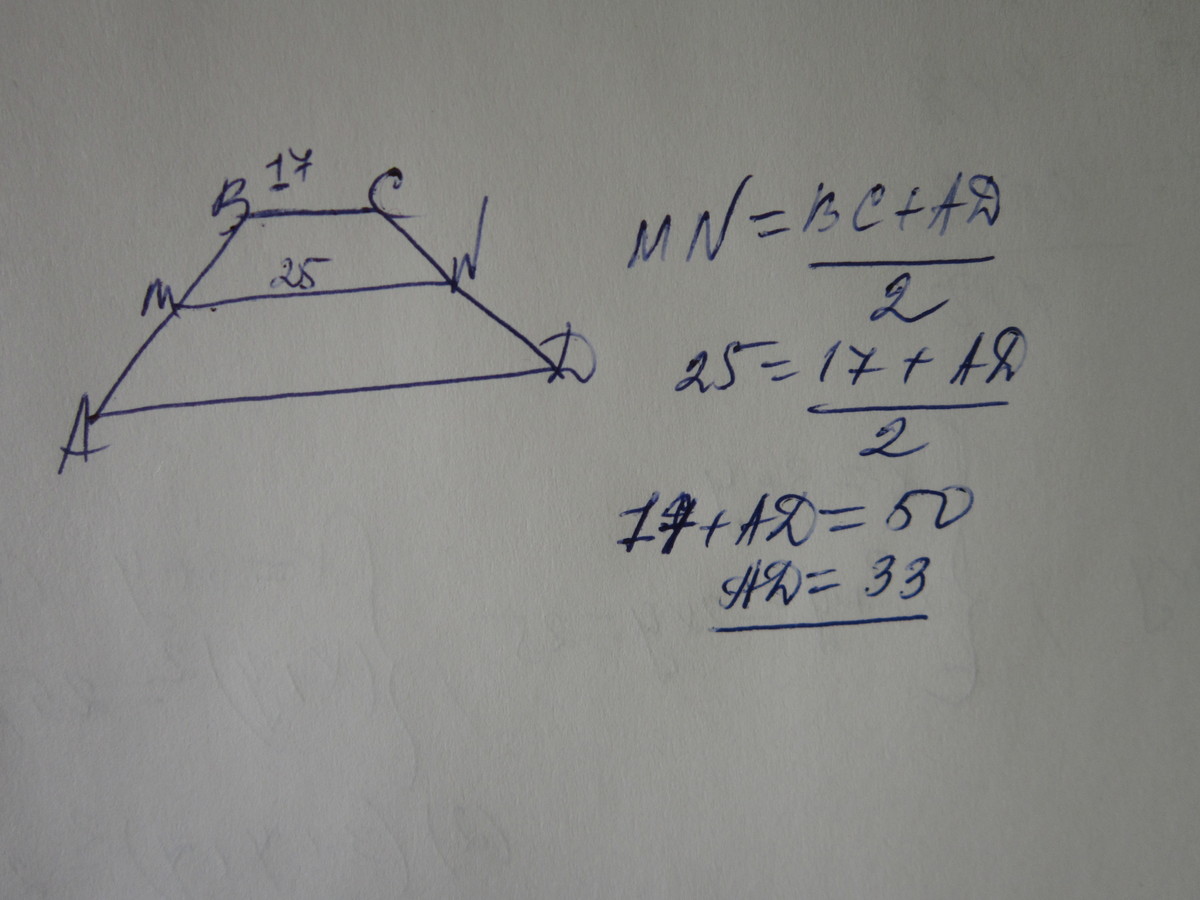 B 17 C
M 25 N
A D
MN = BC + AD
2
25 = 17 + AD
2
17 + AD = 50
AD = 33